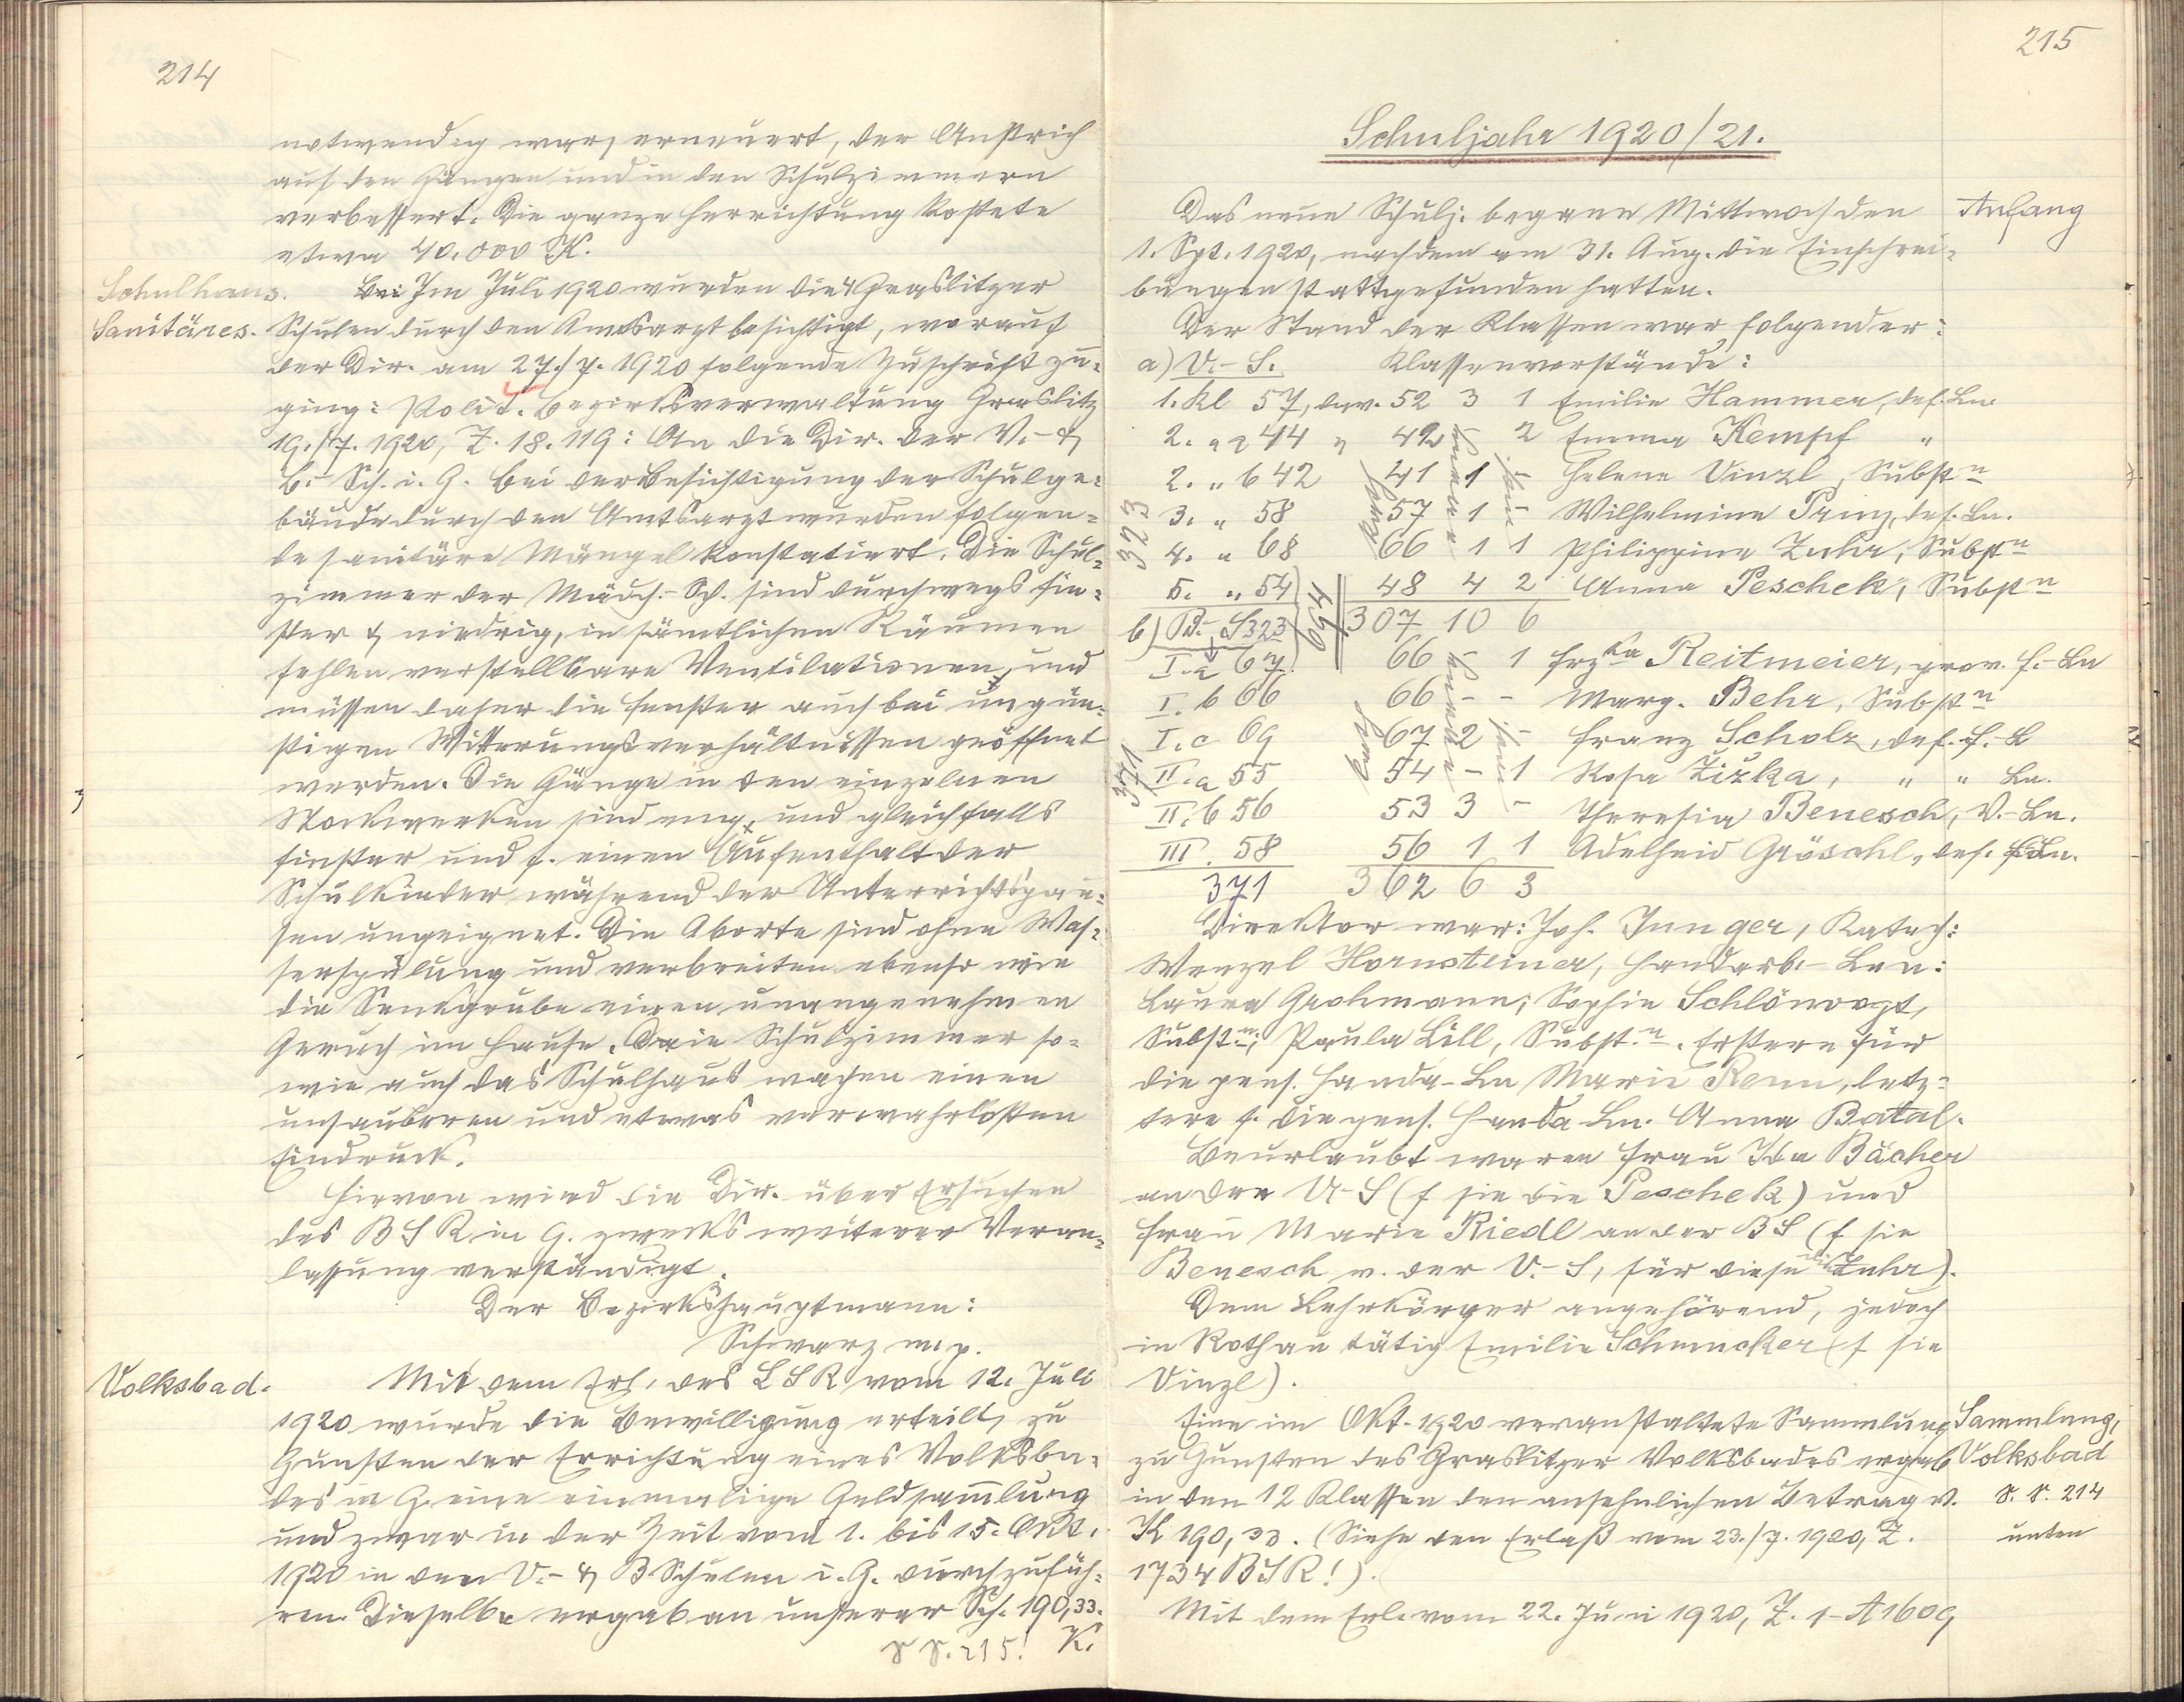 214
notwendig war, erneuert, der Anstrich
auf den Gängen und in den Schulzimmern
verbessert. Die ganze Herrichtung kostete
etwa 40.000 K.
Schulhaus. Im Juli 1920 wurden die 4 Graslitzer
Sanitäres. Schulen durch den Amtsarzt besichtigt, worauf
der Dir. am 27./7. 1920 folgende Zuschrift zu-
ging: Polit. Bezirksverwaltung Graslitz
19./7. 1920, Z. 18.119: An die Dir. der V.- &
B.- Sch. i. G. Bei der Besichtigung der Schulge-
bäude durch den Amtsarzt wurden folgen-
de sanitäre Mängel konstatiert. Die Schul-
zimmer der Mädch.- Sch. sind durchwegs fin-
ster & niedrig, in sämtlichen Räumen
fehlen verstellbare Ventilationen, und
müssen daher die Fenster auch bei ungün-
stigen Witterungsverhältnissen geöffnet
werden. Die Gänge in den einzelnen
Stockwerken sind eng, und gleichfalls
finster und f. einen Aufenthalt der
Schulkinder während der Unterrichtspau-
sen ungeignet. Die Aborte sind ohne Was-
serspülung und verbreiten ebenso wie
die Senkgrube einen unangenehmen
Geruch im Hause. Die Schulzimmer so-
wie auch das Schulhaus machen einen
unsauberen und etwas verwahrlosten
Eindruck.
Hievon wird die Dir. über Ersuchen
des BSR in G. zwecks weiterer Veran-
lassung verständigt.
Der Bezirkshauptmann:
Schwarz m. p.
Volksbad. Mit dem Erl. des LSR vom 12. Juli
1920 wurde die Bewilligung erteilt, zu
Gunsten der Errichtung eines Volksba-
des in G. eine einmalige Geldsammlung
und zwar in der Zeit vom 1. bis 15. Okt.
1920 in den V.- & B Schulen i. G. durchzufüh-
ren. Dieselbe ergab an unserer Sch. 190,33.
K.
S S. 215!
215
Schuljahr 1920/21.
Das neue Schulj. begann Mittwoch den Anfang
1. Spt. 1920, nachdem am 31. Aug. die Einschrei-
bungen stattgefunden hatten.
Der Stand der Klassen war folgender:
a) V.- S. Klassenvorstände:
1. Kl 57, dav. 52 3 1 Emilie Hammer, def. Ln.
2. " a 44 " 42 - 2 Emma Kempf "
2. " b 42 41 1 - Helene Vinzl, Substn
3. " 58 57 1 - Wilhelmine Prinz, def. Ln.
4. " 68 66 1 1 Philippine Zuhr, Substn
5. " 54 48 4 2 Anna Peschek, Substn
323
b) B.- S 323 694 307 10 6
I. a 67 66 - 1 Frzka Reitmeier, prov. F.-Ln
I. b 66 66 - - Marg. Behr, Substn
I. c 69 67 2 - Franz Scholz, def. F.- L
II. a 55 54 - 1 Rosa Zizka, " " Ln.
II. b 56 53 3 - Theresia Benesch, V.-Ln.
III. 58 56 1 1 Adelheid Gröschl, def. F.Ln.
371
371 362 6 3
Direktor war: Joh. Junger, Katech:
Wenzel Hornsteiner, Handarb.- Lnn:
Laura Grohmann; Sophie Schlönorzt,
Substn; Paula Lill, Substn. Erstere für
die pens. Handa-Ln Marie Renn, letz-
tere f. die pens. Handa Ln. Anna Batal.
Beurlaubt waren Frau Ida Bächer
an der V.-S (f sie die Peschek) und
Frau Marie Riedl an der BS (f sie
Benesch v. der V.-S, für diese die Zuhr).
Dem Lehrkörper angehörend, jedoch
in Rothau tätig Emilie Schmucker (f sie
Vinzl).
Eine im Okt. 1920 veranstaltete Sammlung Sammlung,
zu Gunsten des Graslitzer Volksbades ergab Volksbad
in den 12 Klassen den ansehnlichen Betrag v. S. S. 214
K 190,33. (Siehe den Erlaß vom 23./7. 1920, Z. unten
1734 BSR!).
Mit dem Erl. vom 22. Juni 1920, Z. 1-A 1609